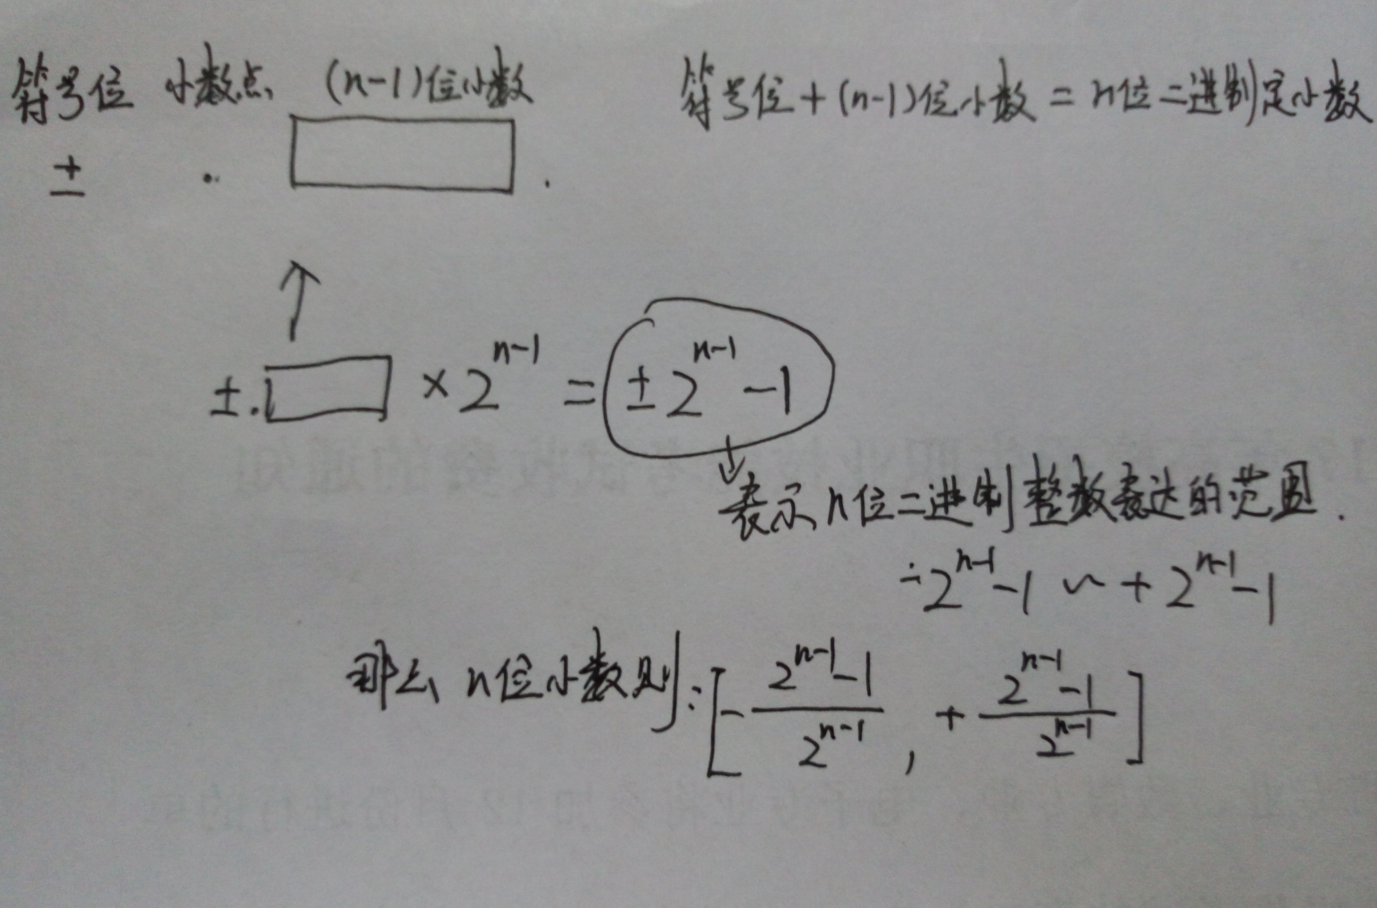 符号位 小数点 (n-1)位小数 符号位+(n-1)位小数=n位二进制定小数
± . .
±. × 2^{n-1} = ±2^{n-1}-1
表示n位二进制整数表达的范围.
-2^{n-1}-1 ~ +2^{n-1}-1
那么 n位小数则: [-\frac{2^{n-1}-1}{2^{n-1}}, +\frac{2^{n-1}-1}{2^{n-1}}]